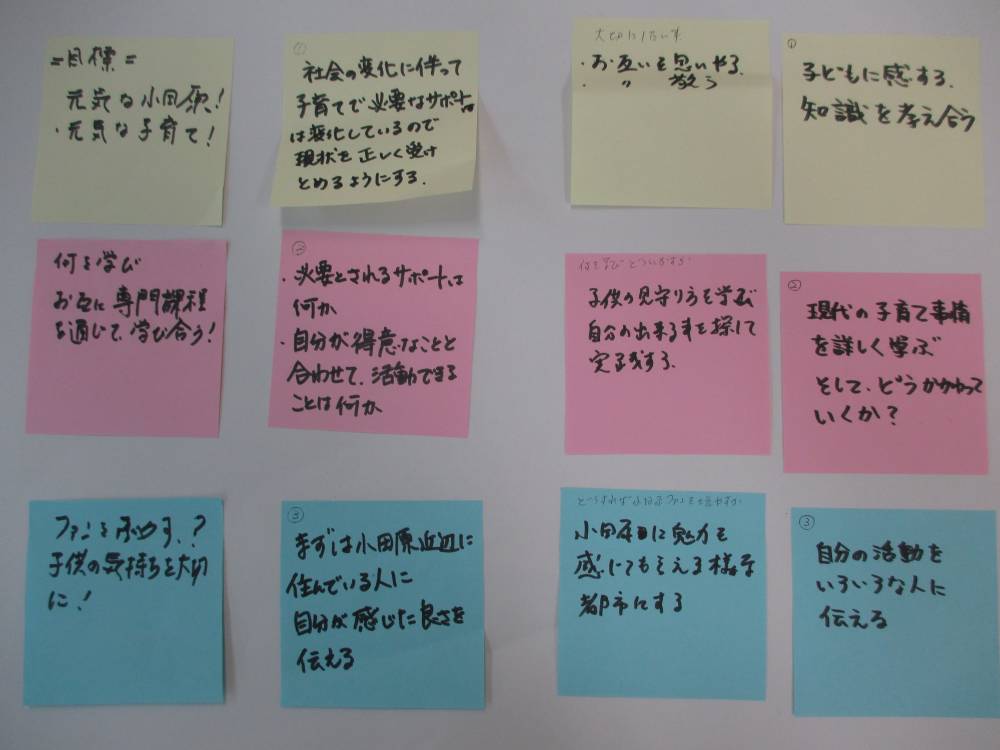 =目標=
元気な小田原!
・元気な子育て!
①
社会の変化に伴って
子育てで必要なサポート
は変化しているので
現状を正しく受け
とめるようにする.
大切にしたい事
・お互いを思いやる.
・〃 敬う
①
子どもに感する.
知識を考え合う
何を学び
お互に専門課程
を通じて、学び合う!
②
・必要とされるサポートは
何か
・自分が得意なことと
合わせて、活動できる
ことは何か
何を学び どういかすか
子供の見守り方を学び
自分の出来る事を探して
実践する.
②
現代の子育て事情
を詳しく学ぶ
そして、どうかかわって
いくか?
ファンをふやす.?
子供の気持ちを大切
に!
③
まずは小田原近辺に
住んでいる人に
自分が感じた良さを
伝える
どうすればおだわらファンを増やすか
小田原に魅力を
感じてもらえる様な
都市にする
③
自分の活動を
いろいろな人に
伝える